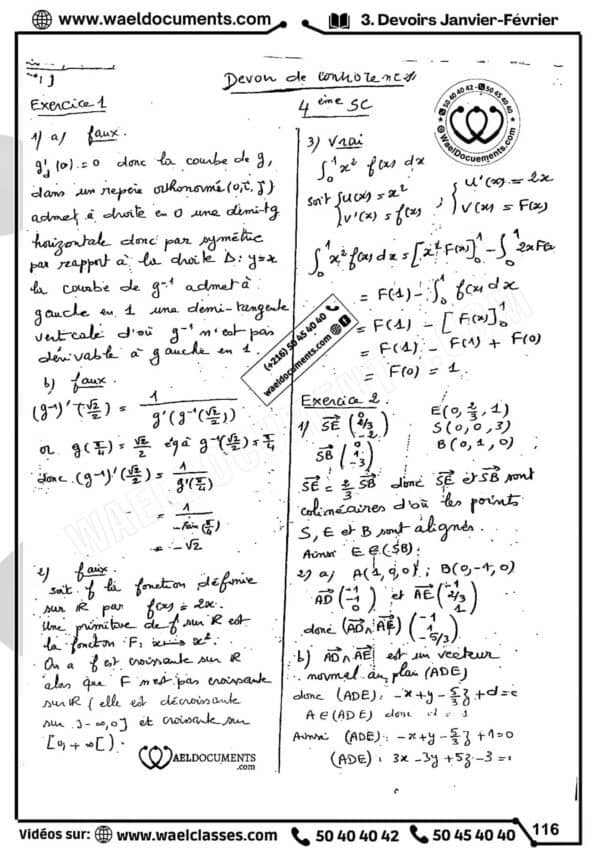 www.waeldocuments.com
3. Devoirs Janvier-Février
Devoir de contrôle n°
4 ème SC
Exercice 1
1) a) faux.
g'd(0) = 0 donc la courbe de g,
dans un repère orthonormé (0, i, j)
admet à droite en 0 une demi-tg
horizontale donc par symétrie
par rapport à la droite Δ: y=x
la courbe de g⁻¹ admet à
gauche en 1 une demi-tangente
verticale d'où g⁻¹ n'est pas
dérivable à gauche en 1
b) faux.
(g⁻¹)'(√2/2) = 1/g'(g⁻¹(√2/2))
or g(π/4) = √2/2 g⁻¹(√2/2) = π/4
donc (g⁻¹)'(√2/2) = 1/g'(π/4)
= 1/-sin(π/4)
= -√2
2) faux.
soit f la fonction définie
sur ℝ par f(x) = 2x.
Une primitive de f sur ℝ est
la fonction F: x ↦ x².
On a f est croissante sur ℝ
alors que F n'est pas croissante
sur ℝ (elle est décroissante
sur ]-∞,0] et croissante sur
[0,+∞[).
WAELDOCUMENTS
.com
3) Vrai
∫₀¹ x² f(x) dx
soit {u(x) = x² {u'(x) = 2x
v'(x) = f(x) v(x) = F(x)
∫₀¹ x² f(x) dx = [x² F(x)]₀¹ - ∫₀¹ 2x F(x)
= F(1) - ∫₀¹ f(x) dx
= F(1) - [F(x)]₀¹
= F(1) - F(1) + F(0)
= F(0) = 1
Exercice 2.
1) SE (0 2/3 -2) E(0, 2/3, 1)
S(0, 0, 3)
SB (0 1 -3) B(0, 1, 0)
SE = 2/3 SB donc SE et SB sont
colinéaires d'où les points
S, E et B sont alignés.
Ainsi E ∈ (SB).
2) a) A(1,0,0) ; D(0,-1,0)
AD (-1 -1 0) et AE (-1 2/3 1)
donc (AD ∧ AE) (-1 1 -5/3)
b) AD ∧ AE est un vecteur
normal au plan (ADE)
donc (ADE): -x+y-5/3 z+d=0
A ∈ (ADE) donc d = 1
Ainsi (ADE): -x+y-5/3 z+1=0
(ADE): 3x-3y+5z-3=0
50 40 40 42 - 50 45 40 40
@WaelDocuements.com
(+216) 50 45 40 40
waeldocuments.com
WAELDOCUMENTS.COM
Vidéos sur: www.waelclasses.com 50 40 40 42 50 45 40 40
116